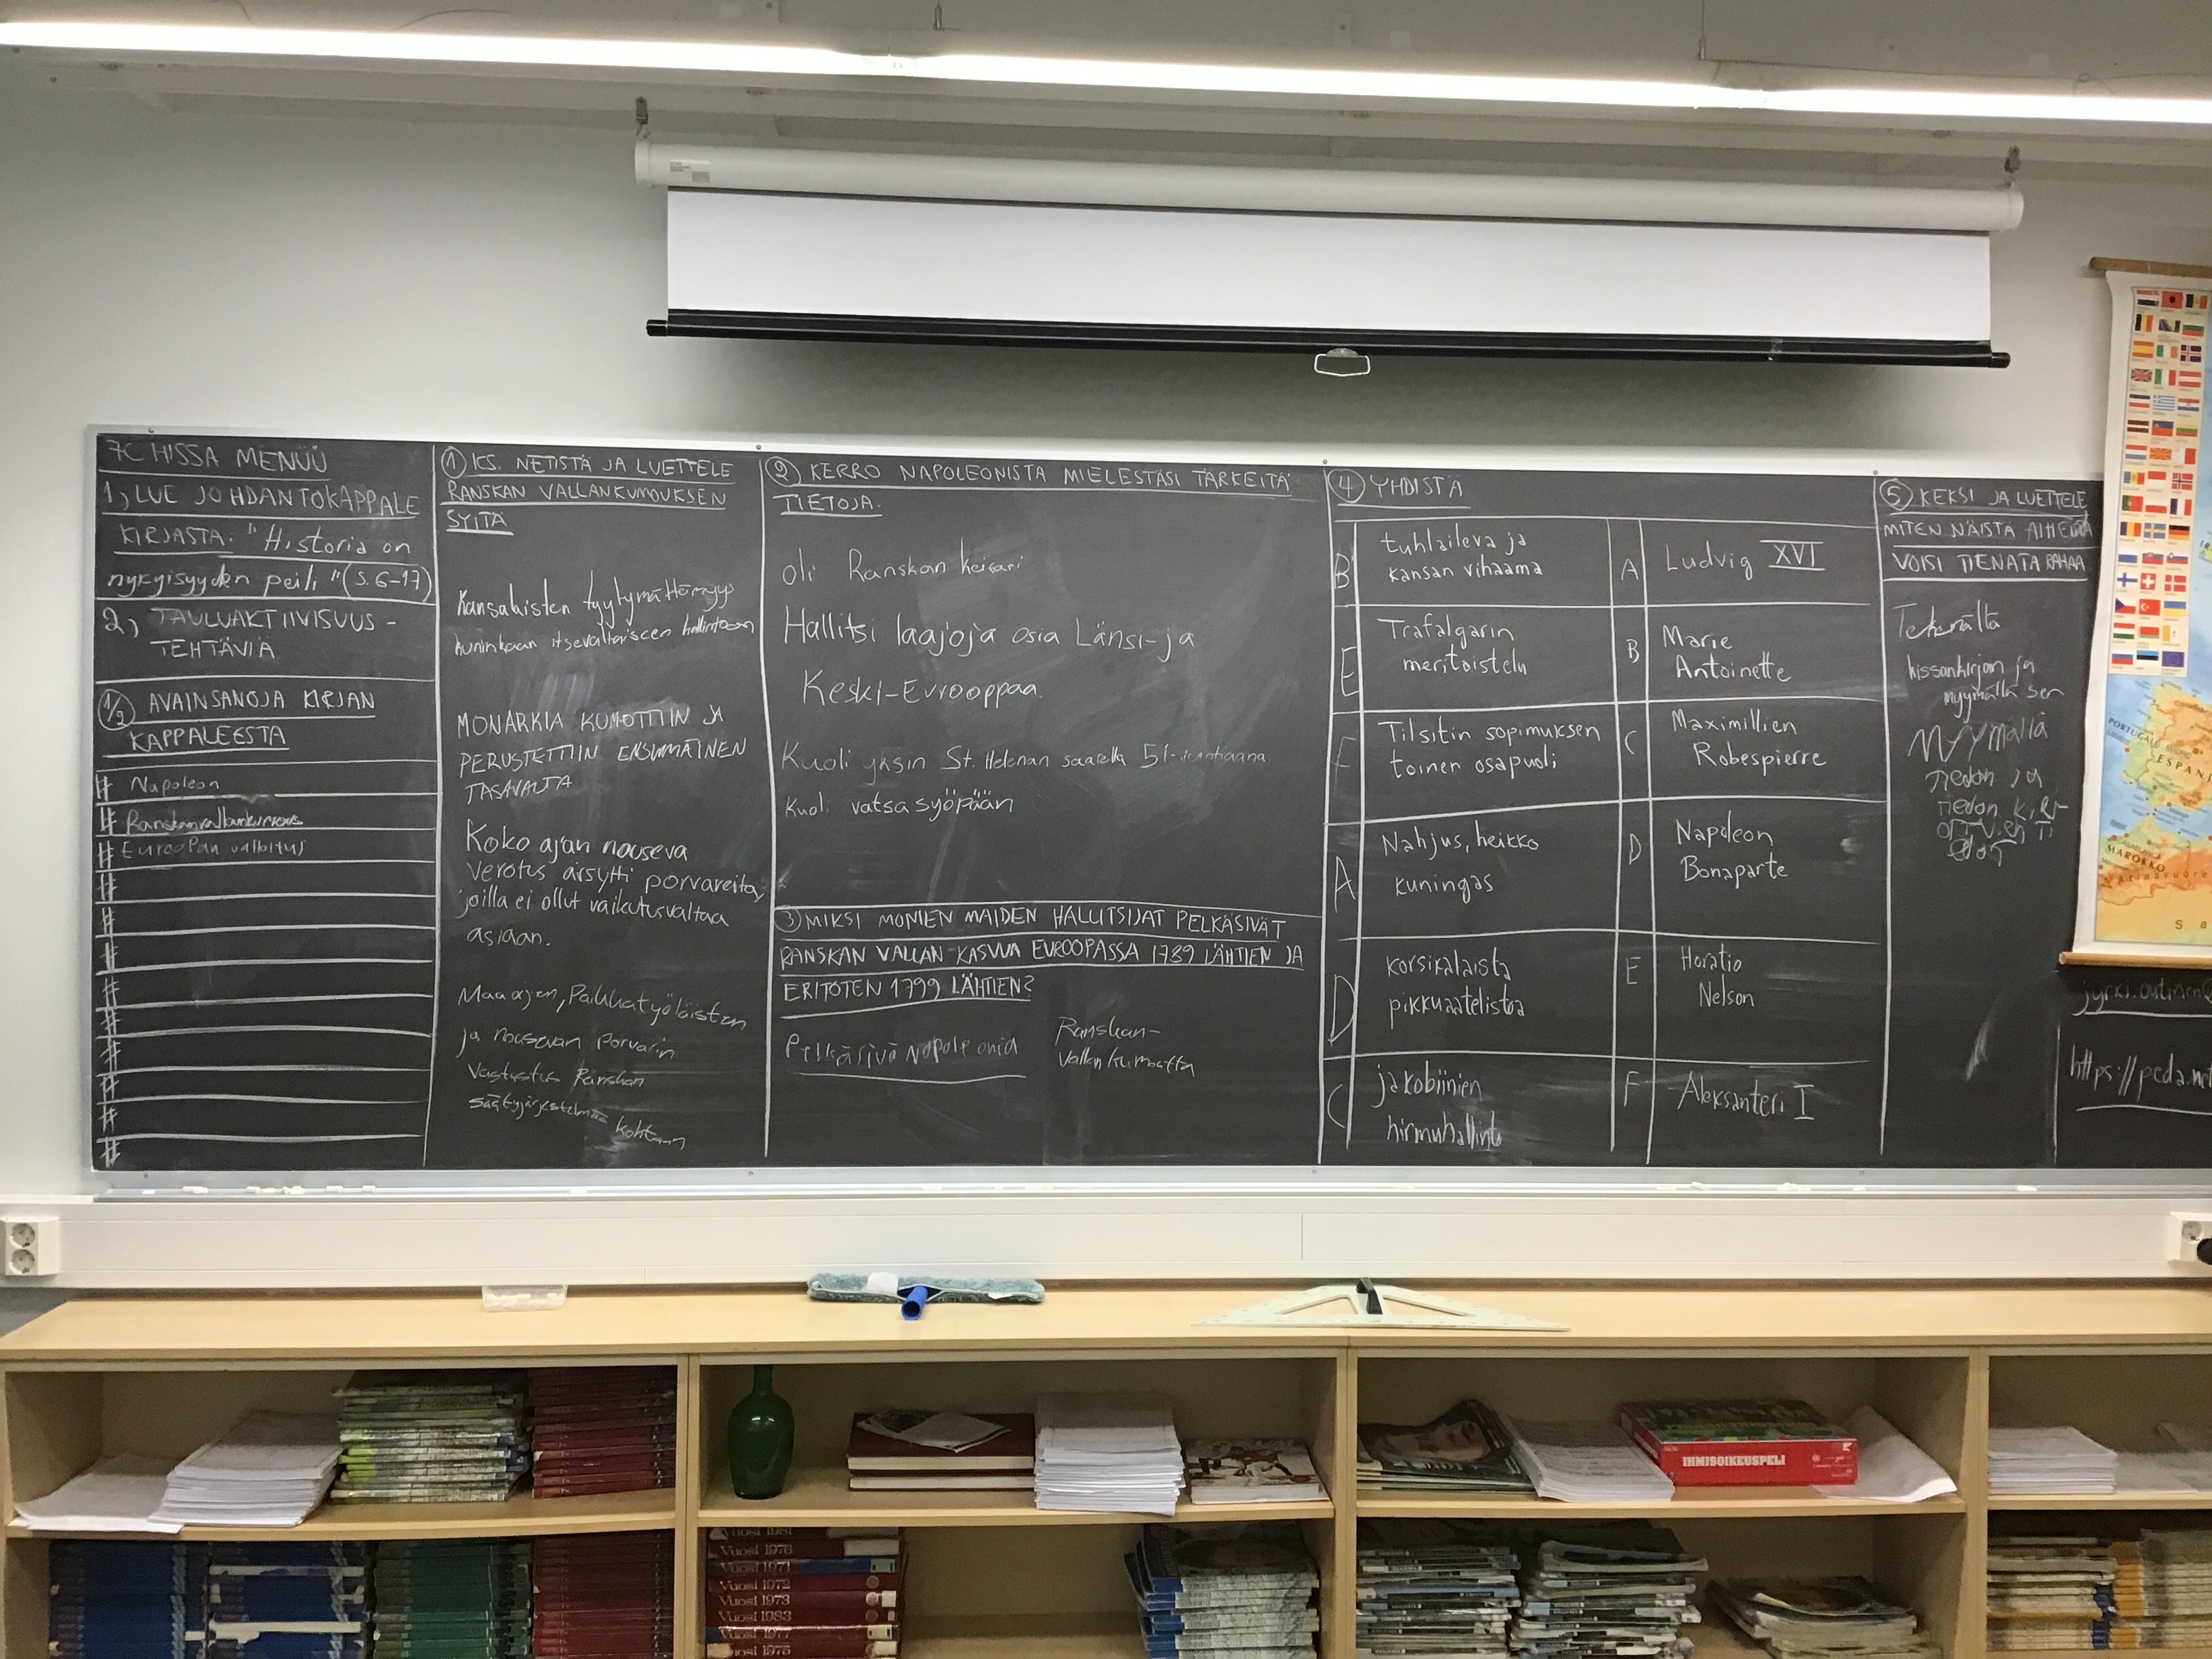 7C HISSA MENÜÜ
1, LUE JOHDANTOKAPPALE
KIRJASTA: "Historia on
nykyisyyden peili" (s. 6-17)
2, TAULUAKTIIVISUUS-
TEHTÄVIÄ
1/2 AVAINSANOJA KIRJAN
KAPPALEESTA
# Napoleon
# Ranskanvallankumous
# Euroopan valloitus
#
#
#
#
#
#
#
#
#
① KS. NETISTÄ JA LUETTELE
RANSKAN VALLANKUMOUKSEN
SYITÄ
Kansalaisten tyytymättömyys
kuninkaan itsevaltaiseen hallintoon
MONARKIA KUMOTTIIN JA
PERUSTETTIIN ENSIMMÄINEN
TASAVALTA
Koko ajan nouseva
verotus ärsytti porvareita,
joilla ei ollut vaikutusvaltaa
asiaan.
Maaorjien, Palkkatyöläisten
ja nousevan porvarin
vastustus Ranskan
säätyjärjestelmää kohtaan
② KERRO NAPOLEONISTA MIELESTÄSI TÄRKEITÄ
TIETOJA.
oli Ranskan keisari
Hallitsi laajoja osia Länsi-ja
Keski-Eurooppaa.
Kuoli yksin St. Helenan saarella 51-vuotiaana
Kuoli vatsasyöpään
③ MIKSI MONIEN MAIDEN HALLITSIJAT PELKÄSIVÄT
RANSKAN VALLAN KASVUA EUROOPASSA 1789 LÄHTIEN JA
ERITOTEN 1799 LÄHTIEN?
Pelkäsivä Napoleonia
Ranskan-
vallankumousta
④ YHDISTÄ
B tuhlaileva ja
kansan vihaama
A Ludvig XVI
E Trafalgarin
meritaistelu
B Marie
Antoinette
F Tilsitin sopimuksen
toinen osapuoli
C Maximillien
Robespierre
A Nahjus, heikko
kuningas
D Napoleon
Bonaparte
D korsikalaista
pikkuaatelistoa
E Horatio
Nelson
C jakobiinien
hirmuhallinto
F Aleksanteri I
⑤ KEKSI JA LUETTELE
MITEN NÄISTÄ AIHEISTA
VOISI TIENATA RAHAA
Tekemällä
hissankirjan ja
myymällä sen
MYYMÄLLÄ
TIEDON JA
TIEDON
jyrki.outinen@
https://peda.net
PORTUGAL
ESPAÑ
MAROKKO
IHMISOIKEUSPELI
Vuosi 1981
Vuosi 1976
Vuosi 1971
Vuosi 1972
Vuosi 1973
Vuosi 1983
Vuosi 1977
Vuosi 1975